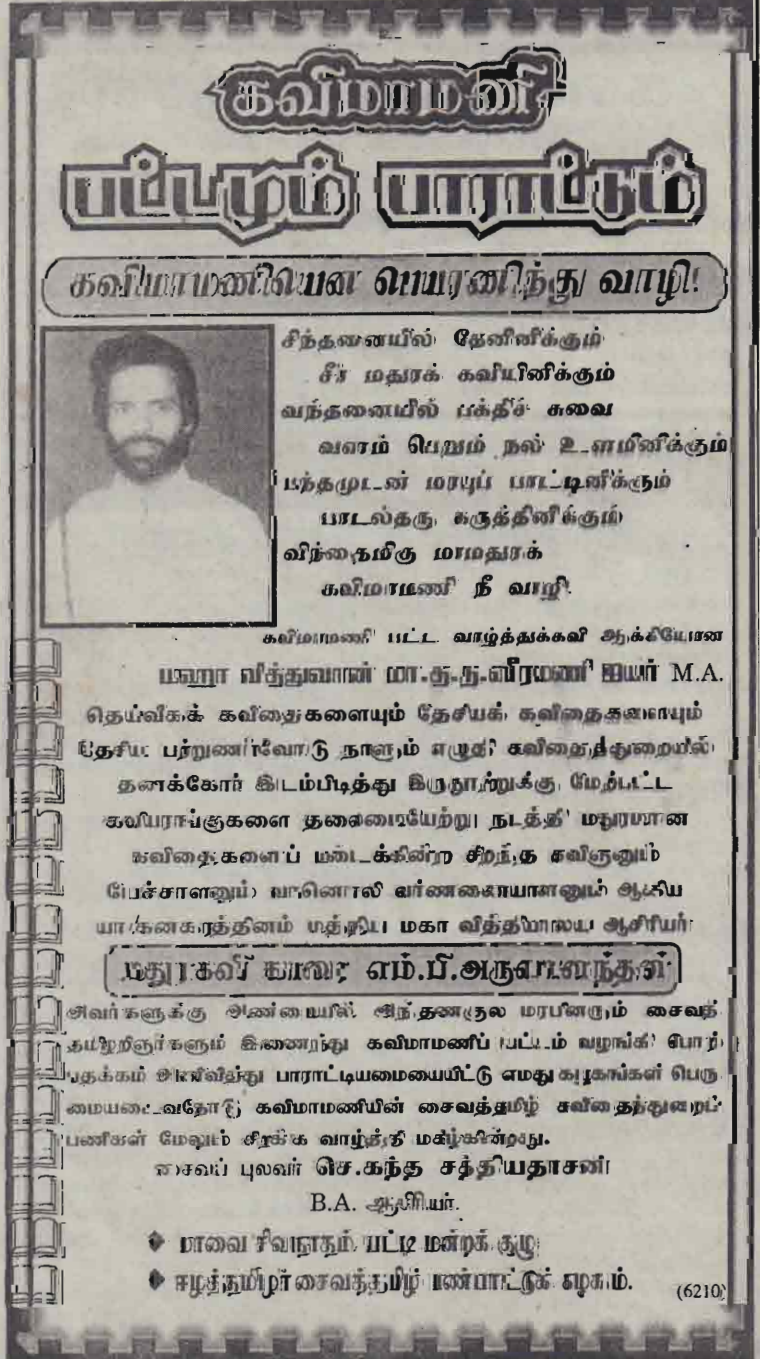 கவிமாமணி
பட்டமும் பாராட்டும்
கவிமாமணியென பெயரணிந்து வாழி!
சிந்தனையில் தேனினிக்கும்
சீர் மதுரக் கவியினிக்கும்
வந்தனையில் பக்திச் சுவை
வளம் பெறும் நல் உளமினிக்கும்
பந்தமுடன் மரபுப் பாட்டினிக்கும்
பாடல்தரு கருத்தினிக்கும்
விந்தைமிகு மாமதுரக்
கவிமாமணி நீ வாழி.
கவிமாமணி பட்ட வாழ்த்துக்கவி ஆக்கியோன
மஹா வித்துவான் மா.த.ந.வீரமணி ஐயர் M.A.
தெய்வீகக் கவிதைகளையும் தேசியக் கவிதைகளையும்
தேசிய பற்றுணர்வோடு நாளும் எழுதி கவிதைத்துறையில்
தனக்கோர் இடம்பிடித்து இருநூற்றுக்கு மேற்பட்ட
கவியரங்குகளை தலைமையேற்று நடத்தி மதுரமான
கவிதைகளைப் படைக்கின்ற சிறந்த கவிஞனும்
பேச்சாளனும் வானொலி வர்ணனையாளனும் ஆகிய
யா/கனகரத்தினம் மத்திய மகா வித்தியாலய ஆசிரியர்
மதுரகவி காரை எம்.பி.அருளானந்தன்
அவர்களுக்கு அண்மையில் அந்தணகுல மரபினரும் சைவத்
தமிழறிஞர்களும் இணைந்து கவிமாமணிப் பட்டம் வழங்கி பொற்
பதக்கம் அணிவித்து பாராட்டியமையையிட்டு எமது கழகங்கள் பெரு
மையடைவதோடு கவிமாமணியின் சைவத்தமிழ் கவிதைத்துறைப்
பணிகள் மேலும் சிறக்க வாழ்த்தி மகிழ்கின்றது.
சைவப் புலவர் செ.கந்த சத்தியதாசன்
B.A. ஆசிரியர்.
மாவை சிவநாதம் பட்டி மன்றக் குழு
ஈழத்தமிழர் சைவத்தமிழ் பண்பாட்டுக் கழகம்.
(6210)